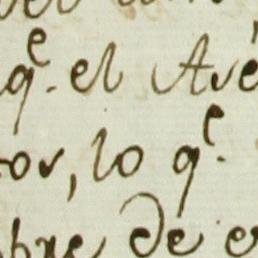 q.e el Avé
tor, lo q.e
bre de e